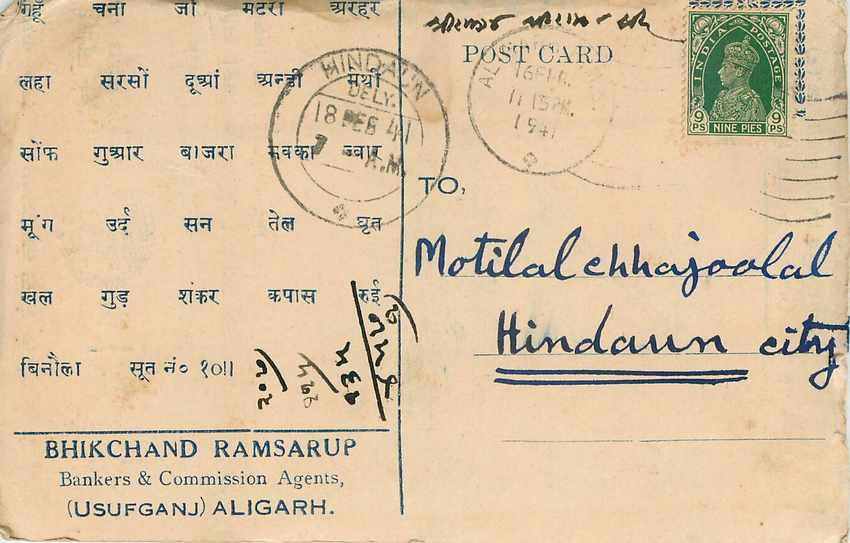 गेहूँ चना जौ मटरा अरहर
लहा सरसों दूआं अन्डी मेथी
सोंफ गुआर बाजरा मक्का ज्वार
मूंग उर्द सन तेल घृत
खल गुड़ शंकर कपास रुई
बिनौला सूत नं० १०॥
BHIKCHAND RAMSARUP
Bankers & Commission Agents,
(USUFGANJ) ALIGARH.
HINDAUN
DELY.
18 FEB 41
7 A.M.
POST CARD
16 FEB.
11 15 PM.
1941
INDIA POSTAGE
9 PS NINE PIES 9 PS
TO,
Motilal chhajoolal
Hindaun city